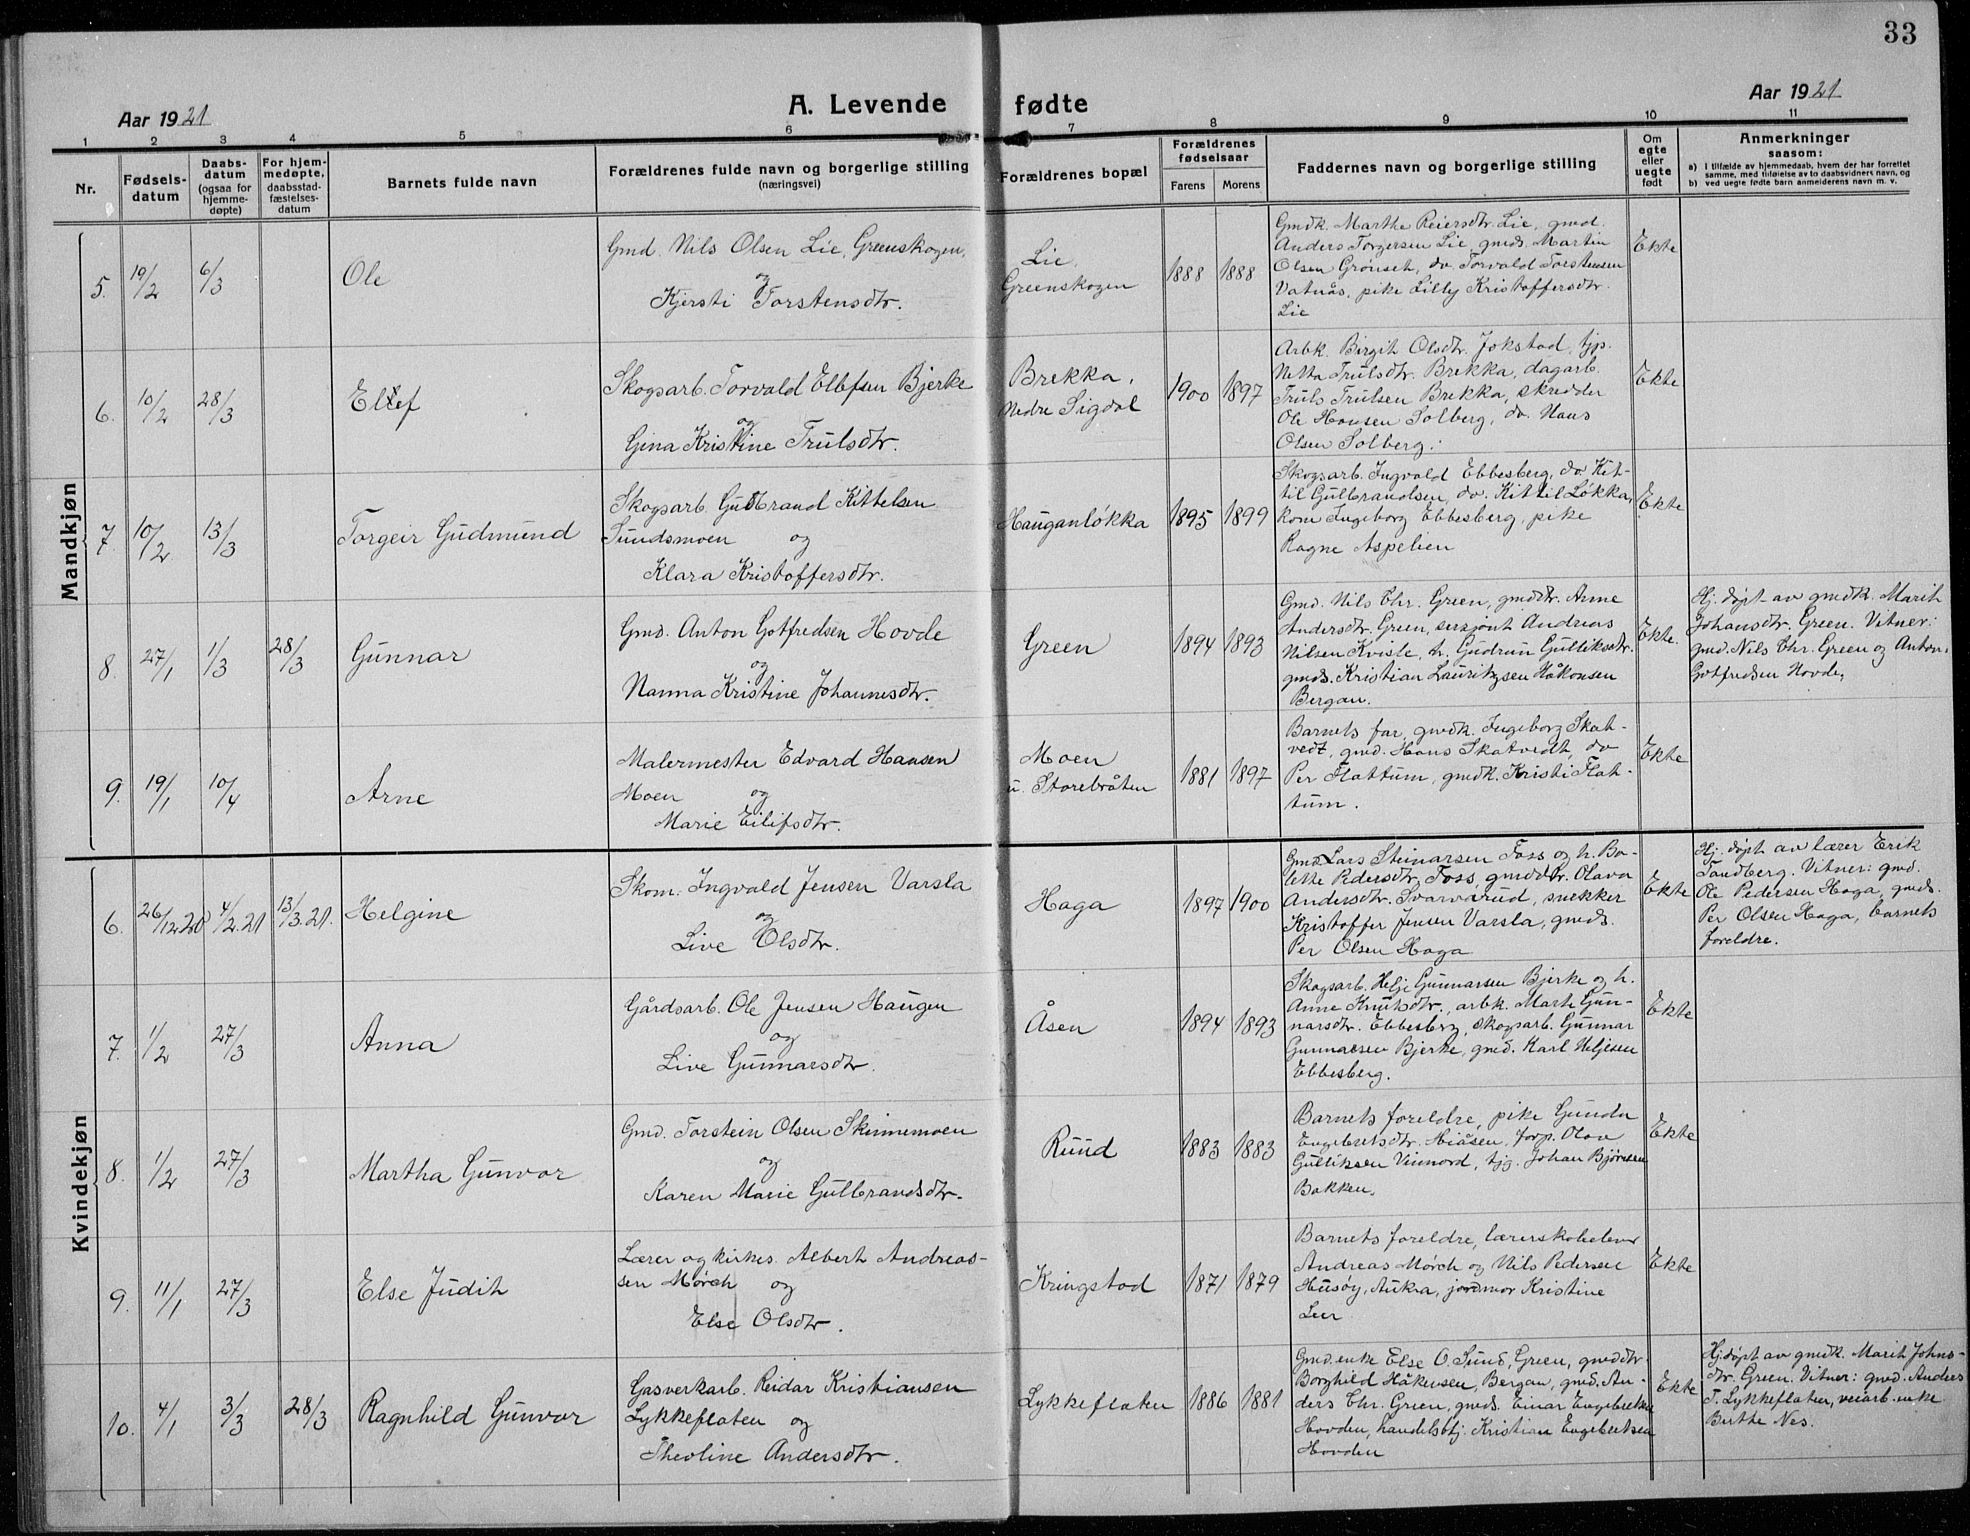 33
A. Levende fødte
Aar 1921
Aar 1921
1 2 3 4 5 6 7 8 9 10 11
Nr.
Fødsels-
datum
Daabs-
datum
(ogsaa for
hjemme-
døpte)
For hjem-
medøpte,
daabsstad-
fæstelses-
datum
Barnets fulde navn
Forældrenes fulde navn og borgerlige stilling
(næringsvei)
Forældrenes bopæl
Forældrenes
fødselsaar
Farens Morens
Faddernes navn og borgerlige stilling
Om
egte
eller
uegte
født
Anmerkninger
saasom:
a) I tilfælde av hjemmedaab, hvem der har forrettet
samme, med tilføielse av to daabsvidners navn, og
b) ved uegte fødte barn anmelderens navn m. v.
Mandkjøn
5. 19/2 6/3
Ole
Gmd. Nils Olsen Lie, Greenskogen,
og
Kjersti Torstensdtr.
Lie,
Greenskogen
1888 1888
Gmdk. Marthe Reiersdtr. Lie, gmd.
Anders Torgersen Lie, gmds. Martin
Olsen Grønset, do. Torvald Torstensen
Vatnås, pike Lilly Kristoffersdtr.
Lie
Ekte
6. 10/2 28/3
Ellef
Skogsarb. Torvald Ellefsen Bjerke
og
Gina Kristine Trulsdtr.
Brekka,
Nedre Sigdal
1900 1897
Arbk. Birgit Olsdtr. Jokstad, tjp.
Netta Trulsdtr. Brekka, dagarb.
Truls Trulsen Brekka, skredder
Ole Hansen Solberg, do. Hans
Olsen Solberg.
Ekte
7. 10/2 13/3
Torgeir Gudmund
Skogsarb. Gudbrand Kittelsen
Sundsmoen og
Klara Kristoffersdtr.
Hauganløkka
1895 1899
Skogsarb. Ingvald Ebbesberg, do. Kit-
til Gulbrandsen, do. Kittil Løkka,
kom Ingeborg Ebbesberg, pike
Ragne Aspelien
Ekte
8. 27/1 1/3 28/3
Gunnar
Gmd. Anton Gotfredsen Hovde
og
Nanna Kristine Johannesdtr.
Green
1894 1893
Gmd. Nils Chr. Green, gmddtr. Anne
Andersdtr. Green, sersjant Andreas
Nilsen Kviste, h. Gudrun Gulliksdtr.
gmds. Kristian Lauritzsen Håkonsen
Bergan.
Ekte.
Hj. døpt av gmdk. Marith
Johansdtr. Green. Vitner:
gmd. Nils Chr. Green og Anton
Gotfredsen Hovde.
9. 19/1 10/4
Arne
Malermester Edvard Hansen
Moen og
Marie Eilifsdtr.
Moen
u. Storebråten
1881 1897
Barnets far, gmdk. Ingeborg Skat-
vedt, gmd. Hans Skatvedt, do
Per Flattum, gmdk. Kristi Flat-
tum.
Ekte
Kvindekjøn
6. 26/12.20 4/2.21 13/3.21.
Helgine
Skom. Ingvald Jensen Varsla
og
Live Olsdtr.
Haga
1897 1900
Gmd. Lars Steinarsen Foss og h. Bo-
lette Pedersdtr. Foss, gmddtr. Olava
Andersdtr. Svarvarud, snekker
Kristoffer Jensen Varsla, gmds.
Per Olsen Haga
Ekte
Hj. døpt av lærer Erik
Sandberg. Vitner: gmd.
Ole Pedersen Haga, gmds.
Per Olsen Haga, barnets
foreldre.
7. 1/2 27/3
Anna
Gårdsarb. Ole Jensen Haugen
og
Live Gunnarsdtr.
Åsen
1894 1893
Skogsarb. Helje Gunnarsen Bjerke og h.
Anne Knutsdtr., arbk. Marte Gun-
narsdtr. Ebbesberg, skogsarb. Gunnar
Gunnarsen Bjerke, gmd. Karl Heljesen
Ebbesberg.
Ekte
8. 1/2 27/3
Martha Gunvor
Gmd. Torstein Olsen Skinnemoen
og
Karen Marie Gulbrandsdtr.
Ruud
1883 1883
Barnets foreldre, pike Gunda
Engebretsdtr. Hiåsen, forp. Olav
Gulliksen Vinnord, tjg. Johan Bjørnsen
Bakken.
Ekte
9. 11/1 27/3
Else Judith
Lærer og kirkes. Albert Andreas-
sen Mørch og
Else Olsdtr.
Kringstad
1871 1879
Barnets foreldre, lærerskoleelever
Andreas Mørch og Nils Pedersen
Husøy, Aukra, jordmor Kristine
Leer
Ekte
10. 4/1 3/3 28/3
Ragnhild Gunvor
Gasverkarb. Reidar Kristiansen
Lykkeflaten og
Theoline Andersdtr.
Lykkeflaten
1886 1881
Gmd.enke Else O. Sund, Green, gmddtr
Borghild Håkensen, Bergan, gmd. An-
ders Chr. Green, gmds. Einar Engebretsen
Hovden, handelsbtj. Kristian Engebretsen
Hovden
Ekte
Hj. døpt av gmdk. Marit Johns-
dtr. Green. Vitner: gmd. Anders
T. Lykkeflaten, veiarb.enke
Berthe Nes.